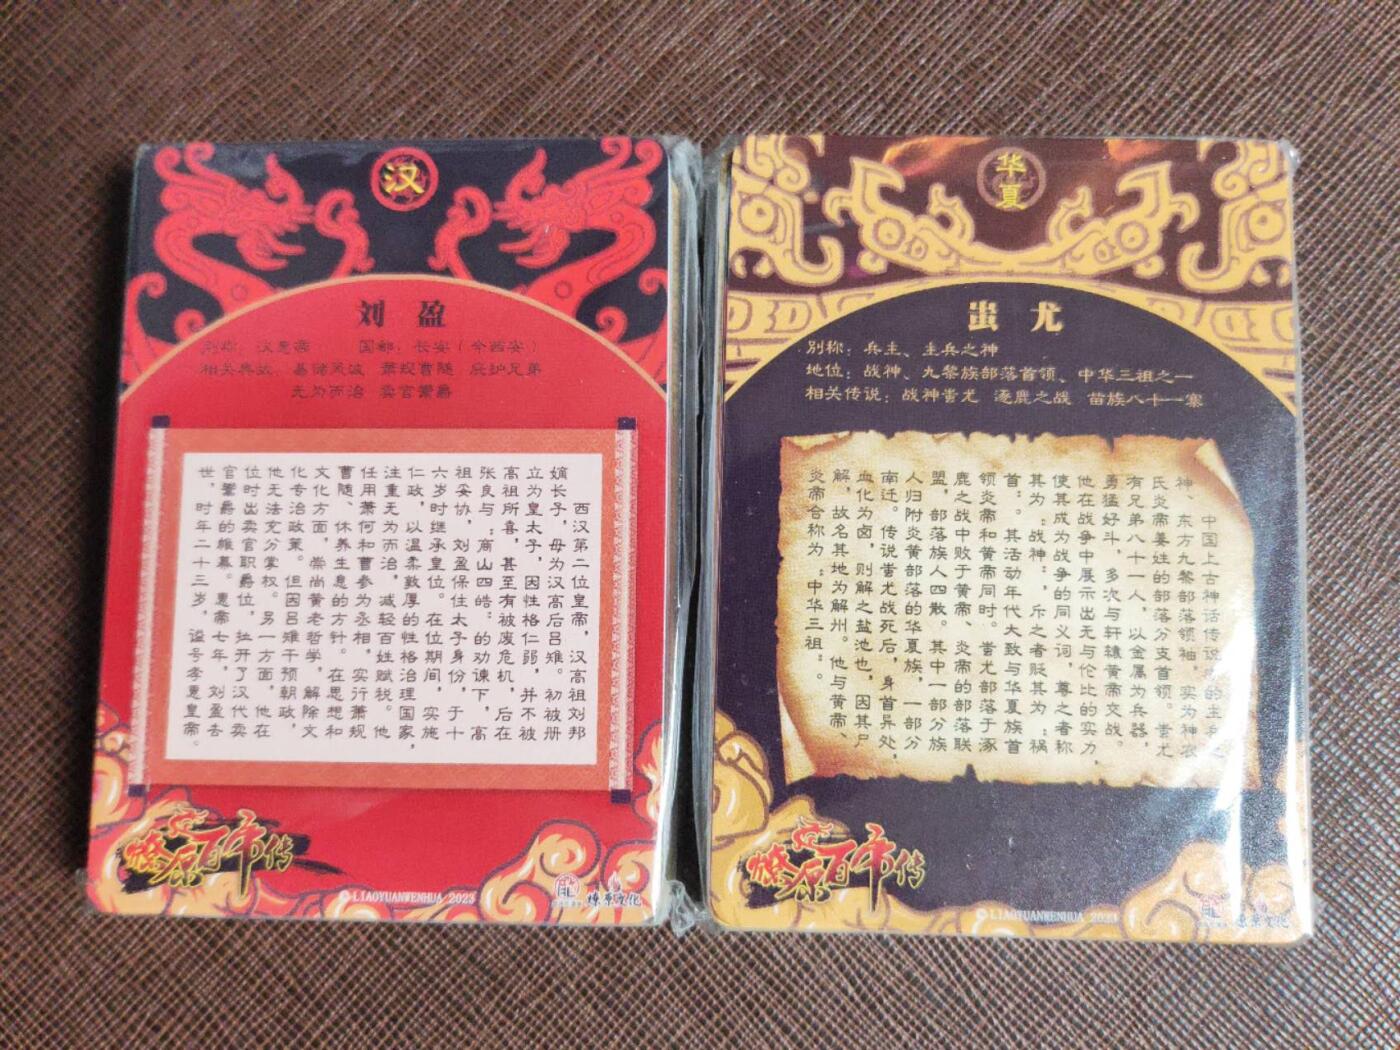 汉
刘盈
别称：汉惠帝 国都：长安（今西安）
相关典故：易储风波 萧规曹随 庇护兄弟
无为而治 卖官鬻爵
西汉第二位皇帝，汉高祖刘邦
嫡长子，母为汉高后吕雉。初被册
立为皇太子，因性格仁弱，并不被
高祖所喜，甚至有被废危机，后在
张良与：商山四皓。的劝谏下，高
祖妥协，刘盈保住太子身份，于十
六岁时继承皇位。在位期间，实施
仁政，以温柔敦厚的性格治理国家，
注重无为而治，减轻百姓赋税。他
任用萧何和曹参为丞相，实行萧规
曹随、休养生息的方针。在思想和
文化方面，崇尚黄老哲学，解除文
化专治政策。但因吕雉干预朝政，
他无法充分掌权。另一方面，他在
位时出卖官职爵位，拉开了汉代卖
官鬻爵的帷幕。惠帝七年，刘盈去
世，时年二十三岁，谥号孝惠皇帝。
燎原百帝传
©LIAOYUANWENHUA 2023
燎原文化
华夏
蚩尤
别称：兵主、主兵之神
地位：战神、九黎族部落首领、中华三祖之一
相关传说：战神蚩尤 逐鹿之战 苗族八十一寨
中国上古神话传说中的主兵之
神、东方九黎部落领袖，实为神农
氏炎帝姜姓的部落分支首领。蚩尤
有兄弟八十一人，以金属为兵器，
勇猛好斗，多次与轩辕黄帝交战。
他在战争中展示出无与伦比的实力，
使其成为战争的同义词，尊之者称
其为：战神：，斥之者贬其为：祸
首：。其活动年代大致与华夏族首
领炎帝和黄帝同时。蚩尤部落于涿
鹿之战中败于黄帝、炎帝的部落联
盟，部落族人四散。其中一部分族
人归附炎黄部落的华夏族，一部分
南迁。传说蚩尤战死后，身首异处，
血化为卤，则解之盐池也，因其尸
解，故名其地为解州。他与黄帝、
炎帝合称为：中华三祖：。
燎原百帝传
©LIAOYUANWENHUA 2023
燎原文化